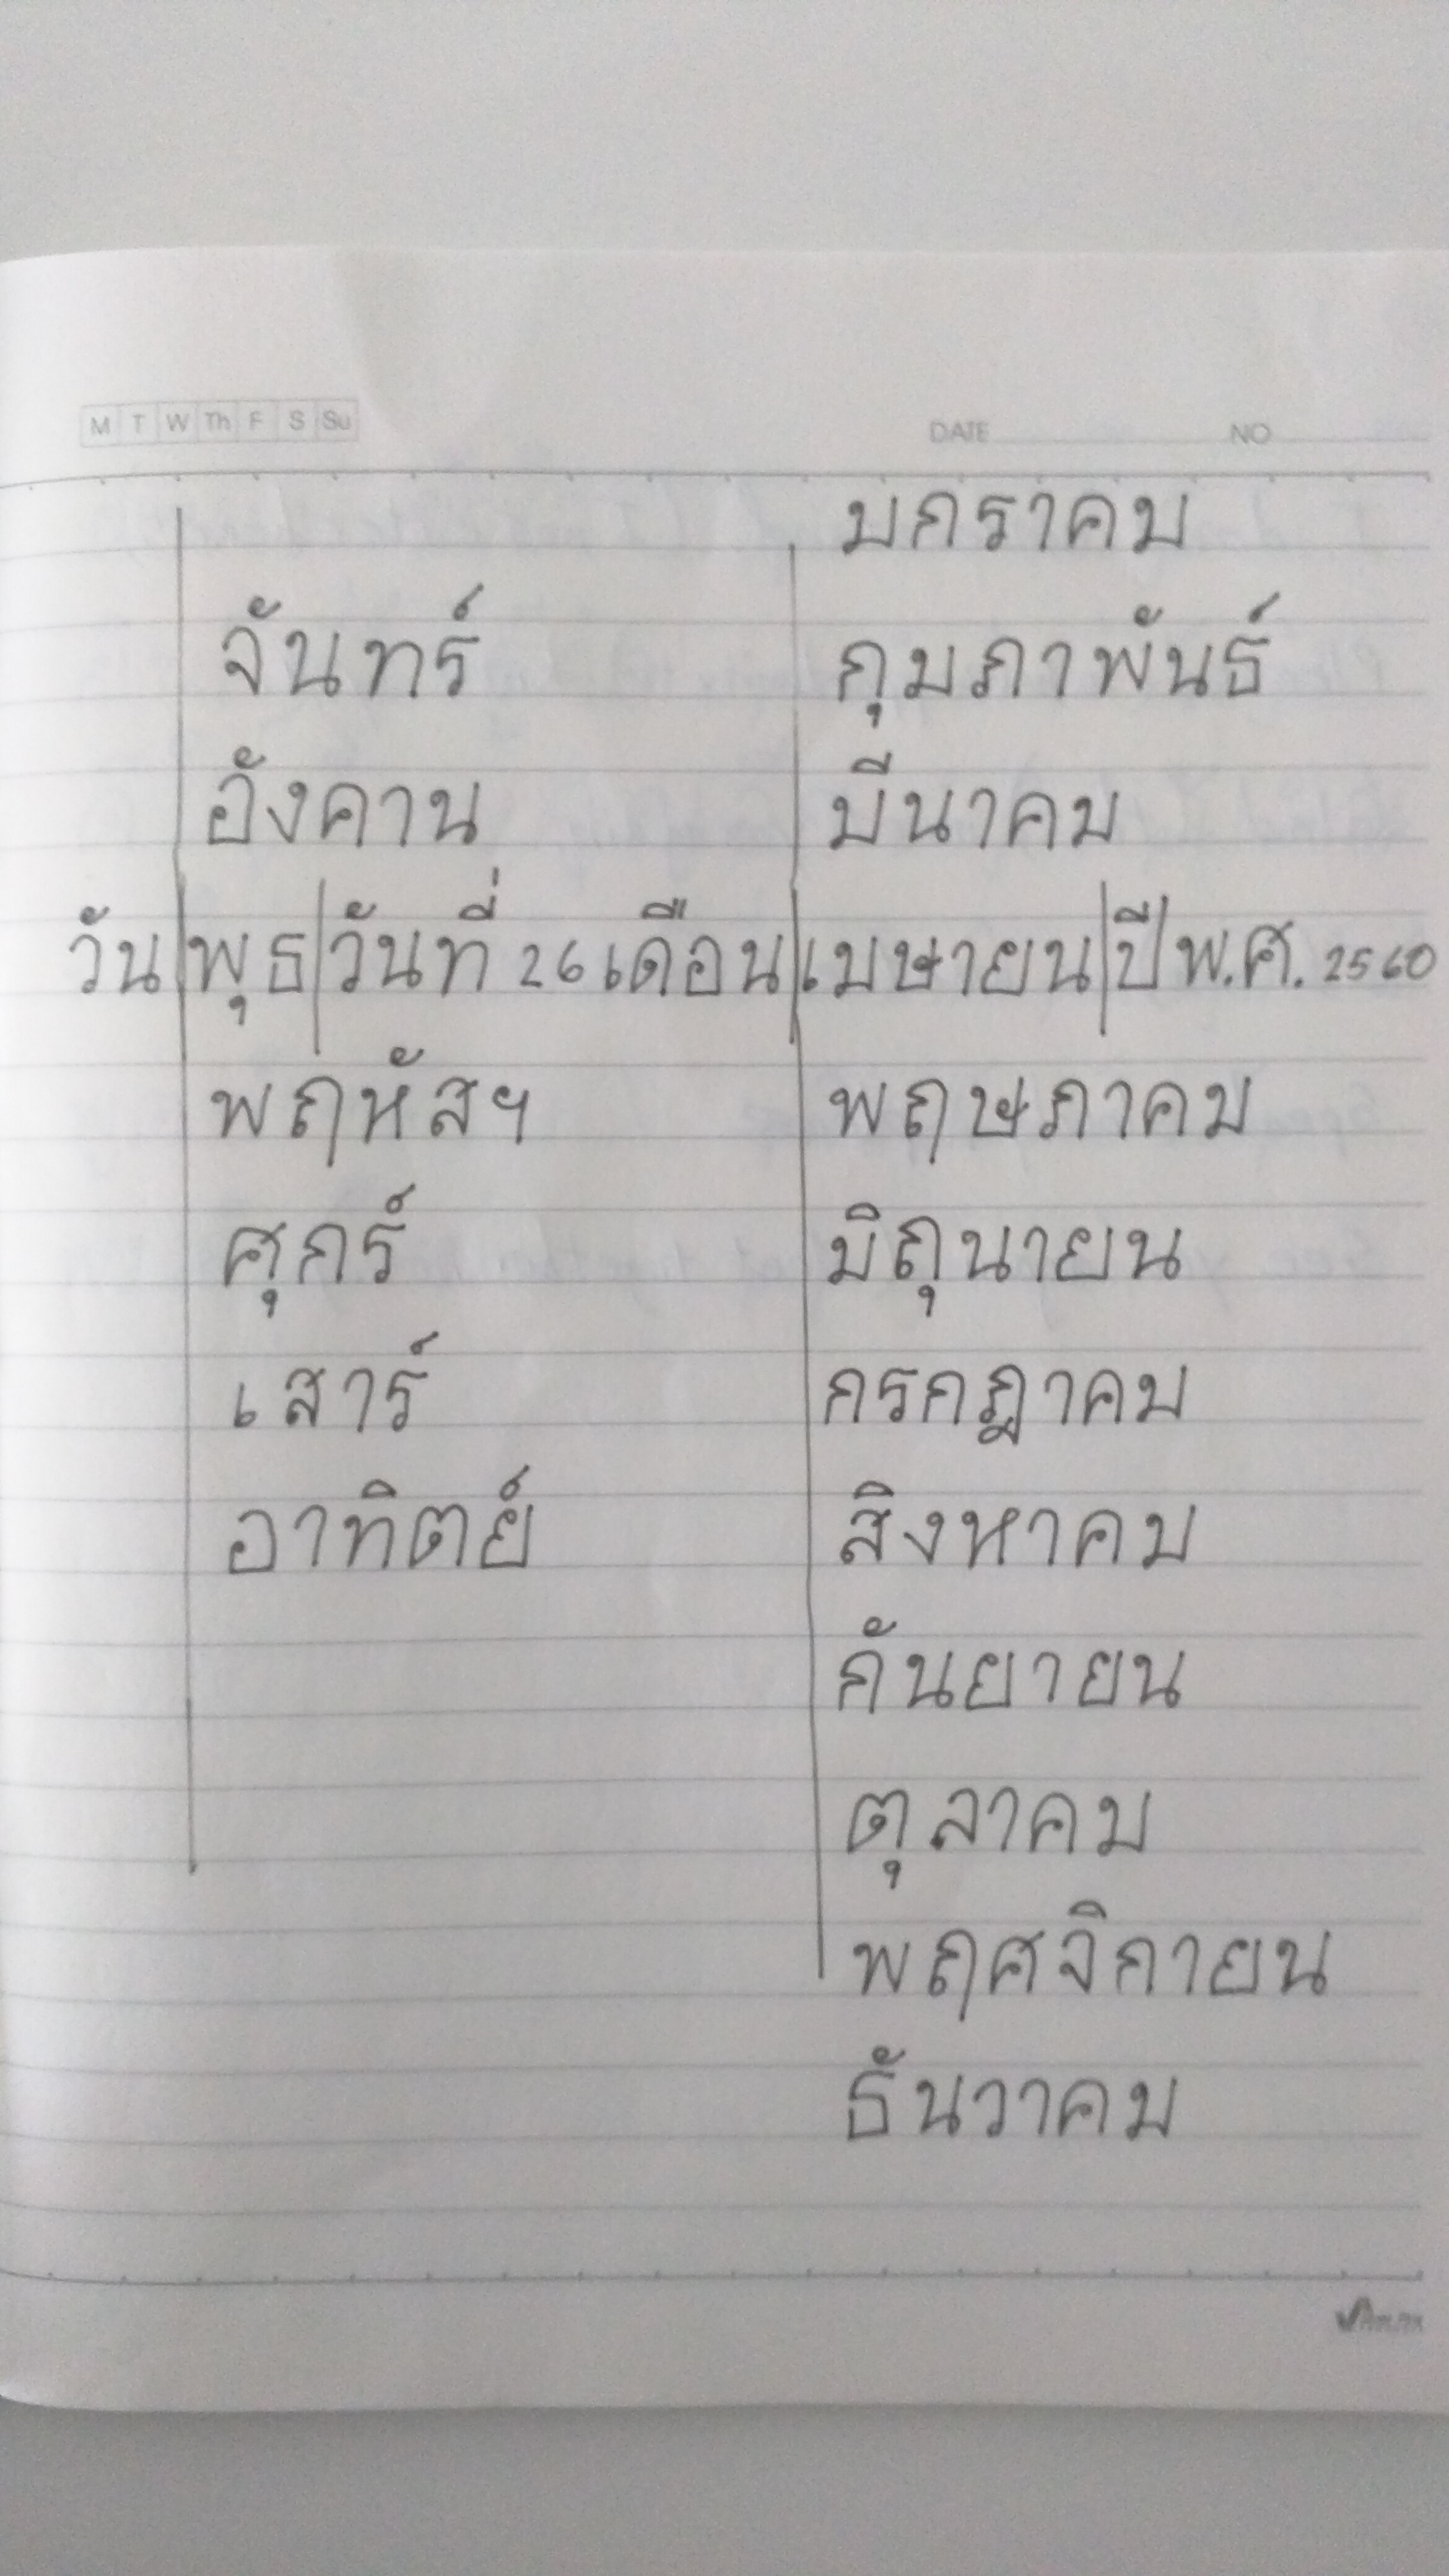 M T W Th F S Su DATE NO
มกราคม
จันทร์ กุมภาพันธ์
อังคาน มีนาคม
วัน พุธ วันที่ 26 เดือน เมษายน ปี พ.ศ. 2560
พฤหัสฯ พฤษภาคม
ศุกร์ มิถุนายน
เสาร์ กรกฎาคม
อาทิตย์ สิงหาคม
กันยายน
ตุลาคม
พฤศจิกายน
ธันวาคม